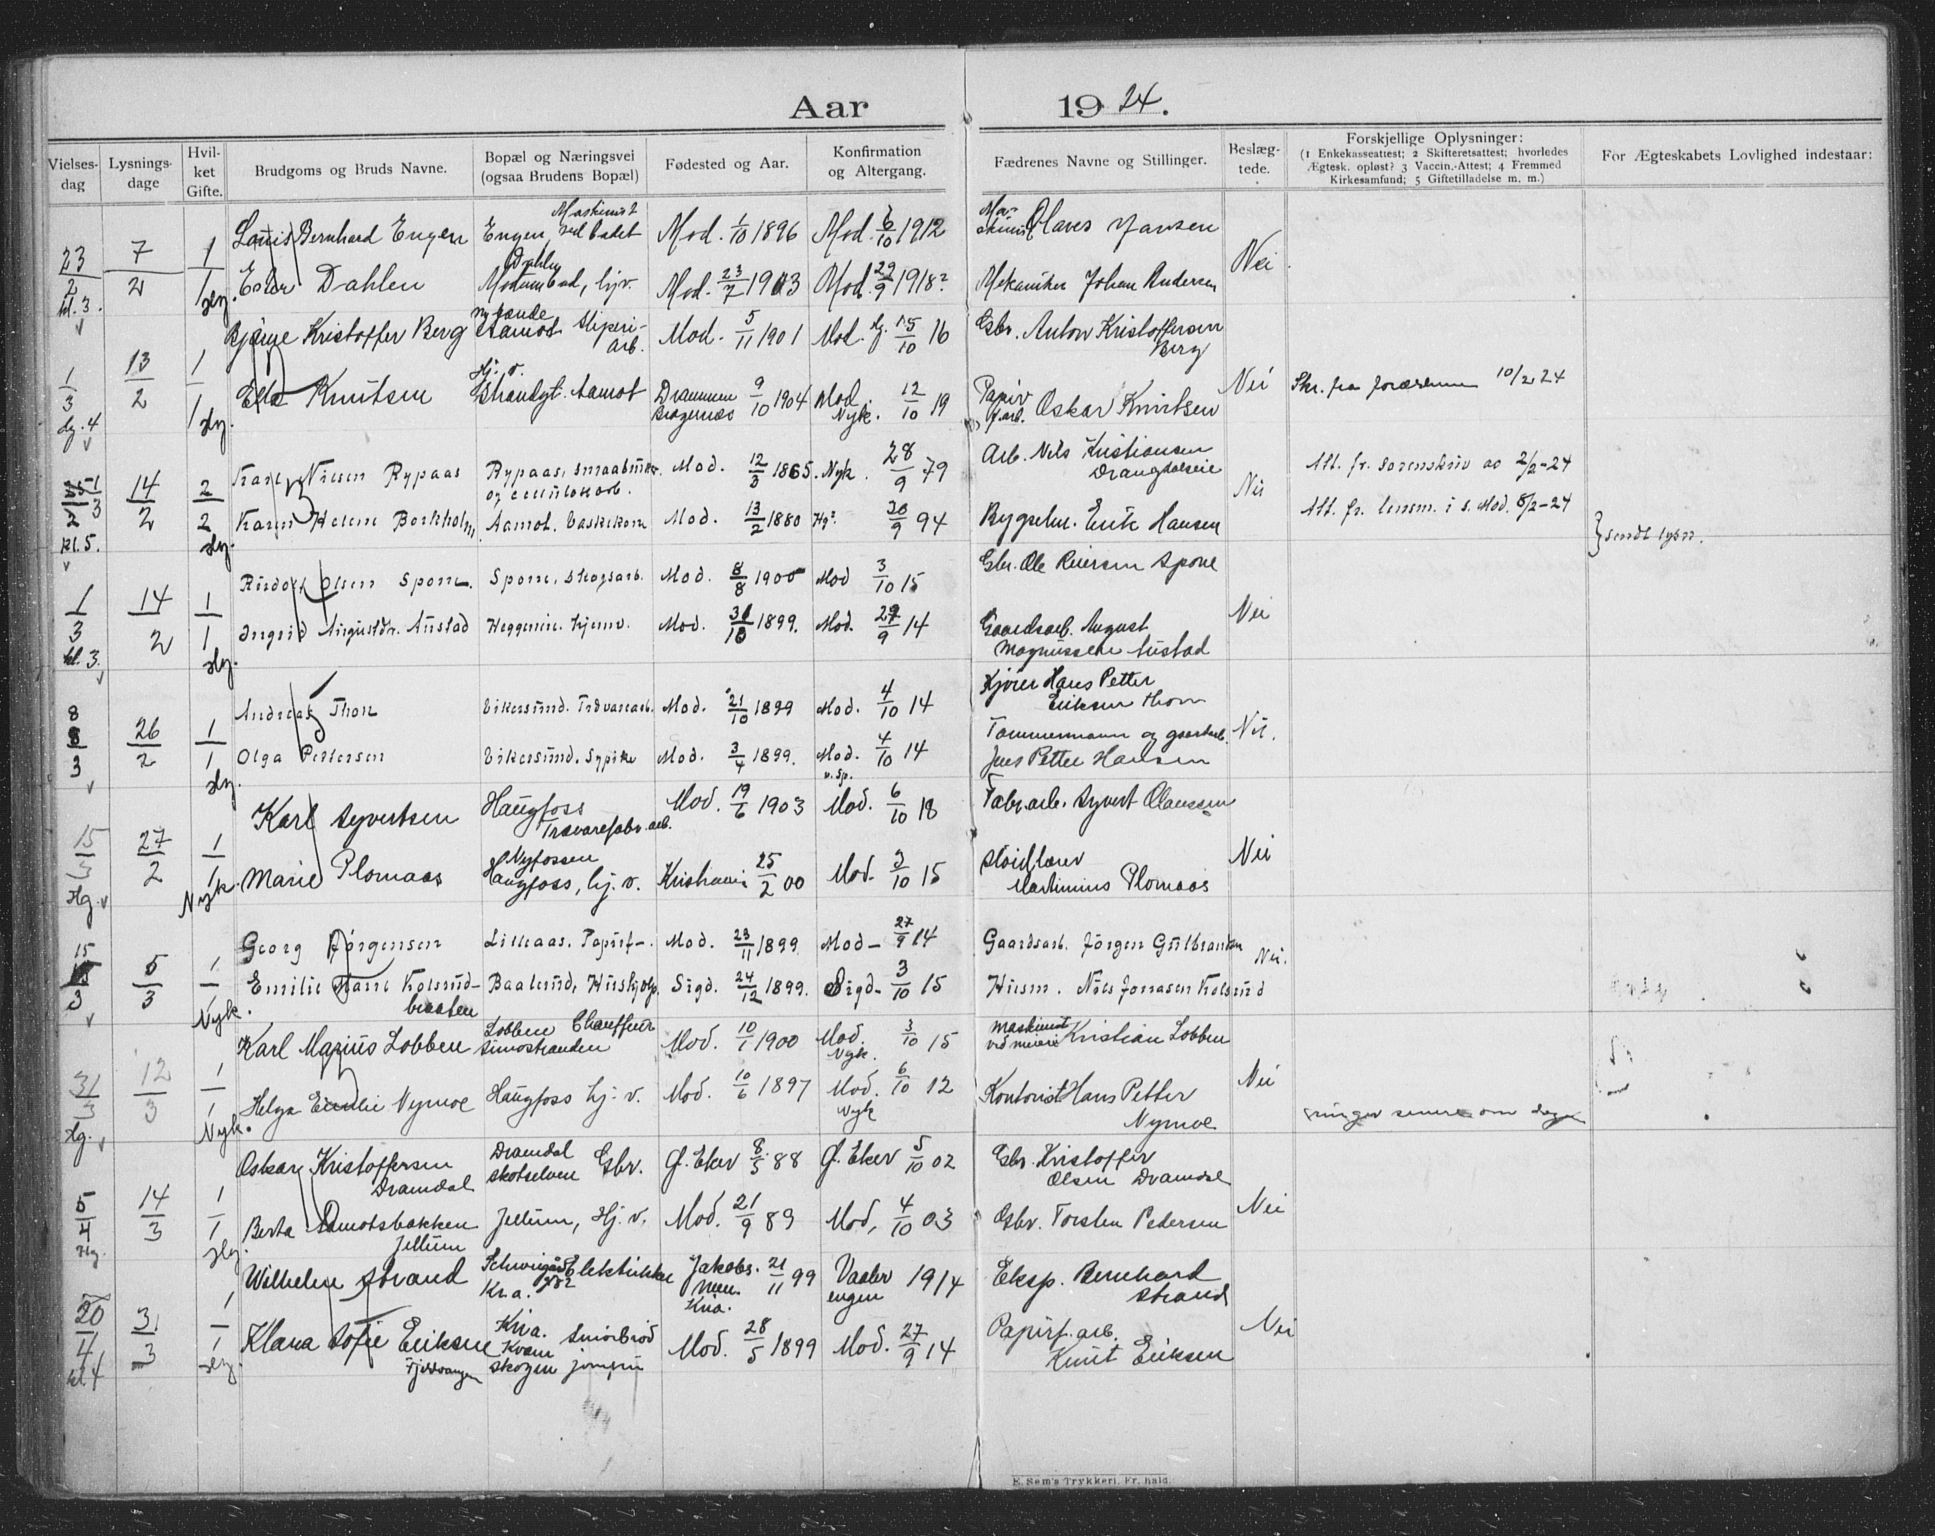 Aar 19 24.
Vielses-dag
Lysnings-dage
Hvil-ket Gifte.
Brudgoms og Bruds Navne.
Bopæl og Næringsvei (ogsaa Brudens Bopæl)
Fødested og Aar.
Konfirmation og Altergang.
Fædrenes Navne og Stillinger.
Beslæg-tede.
Forskjellige Oplysninger:
(1 Enkekasseattest; 2 Skifteretsattest; hvorledes
Ægtesk. opløst? 3 Vaccin.-Attest; 4 Fremmed
Kirkesamfund; 5 Giftetilladelse m. m.)
For Ægteskabets Lovlighed indestaar:
23/2 kl. 3. 7/2 1
Louis Bernhard Engen Engen Maskinist ved badet Mod. 1/10 1896 Mod. 6/10 1912 Olaves Jansen
1 Hg. Ester Dahlen Dahlen Modumbad, hjv. Mod. 23/7 1903 Mod. 29/9 1918? Mekaniker Johan Andersen Nei
Kristoffer Berg Aamot Sliperi-arb. Mod. 5/11 1901 Mod. 15/10 16 Gbr. Anton Kristoffersen Berg
1/3 Hg. 4 13/2 1
1 Hg. Ella Knutsen Hj. v. Strandgt. Aamot Drammen Bragernes 9/10 1904 Mod. Nyk. 12/10 19 Papirf.arb. Oskar Knutsen Nei Skr. fra forældrene 10/2 24
1/3 kl. 5. 14/2 2
Karl Nilsen Rypaas Rypaas, smaabruker og cellulosearb. Mod. 12/3 1865. Nyk. 28/9 79 Arb. Nils Kristiansen Drangdalseie Nei Att. fr. sorenskriv 2/2-24
2 Hg. Karen Helene Borkholm, Aamot. Mod. 13/2 1880 Hg? 30/9 94 Bygselm. Erik Hansen Att. fr. lensm. i s. Mod. 8/2-24
} sendt lysn.
1/3 kl. 3. 14/2 1
Rudolf Olsen Spone. Spone, skogsarb. Mod. 8/8 1900 Mod 3/10 15 Gbr. Ole Reiersen Spone
1 Hg. Ingrid Augustdr. Austad Heggenin. hjemv. Mod. 31/10 1899. Mod. 27/9 14 Gaardsarb. August Magnussen Austad Nei
8/3 26/2 1
Andreas Thon Vikersund. Trævarearb. Mod. 21/10 1899 Mod. 4/10 14 Kjører Hans Petter Eriksen Thon
1 Hg. Olga Pettersen Vikersund. Sypike Mod. 3/4 1899. Mod. 4/10 14 Tømmermann og gaardarb. Jens Petter Hansen Nei.
15/3 Hg. 27/2 1
Karl Syvertsen Haugfoss Trævarefabr.arb. Mod. 19/6 1903 Mod. v. Sp. 6/10 18 Fabr.arb. Syvert Olaussen
1 Nyk. Marie Plomaas Nyfossen Haugfoss, hj. v. Kristiania 25/2 00 Mod. 3/10 15 Martinius Plomaas Nei
15/3 5/3 1
Georg Jørgensen Lilleaas. Papirf-. Mod. 23/11 1899. Mod- 27/9 14 Gaardsarb. Jørgen Gulbransen Nei.
1 Nyk. Emilie Marie Kolsrud-braaten Baalsrud, Hushjelp. Sigd. 24/12 1899. Sigd- 3/10 15 Husm. Nils Jonasen Kolsrud
31/3 Hg. 12/3 1
Karl Marius Lobben Lobben Chauffeur Simostranden Mod. 10/1 1900 Mod. Nyk. 3/10 15 Maskinist ved meieri Kristian Lobben
1 Nyk. Helga Emilie Nymoe Haugfoss hj. v. Mod. 10/6 1897 Mod. Nyk 6/10 12 Kontorist Hans Petter Nymoe Nei ringer senere om dagen
5/4 Hg. 14/3 1
Oskar Kristoffersen Dramdal Dramdal Skotselven Gbr. Ø. Eker 8/5 88 Ø. Eker 5/10 02 Gbr. Kristoffer Olsen Dramdal
1 Hg. Berta Aamotsbakken Jellum Jellum, Hj. v. Mod. 21/9 89 Mod, 4/10 03 Gbr. Torsten Pedersen Nei
20/4 kl 4 31/3 1
Wilhelm Strand Kr.a. Jakobs. Kria. 21/11 99 Vaaler engen 1914 Eksp. Bernhard Strand
1 Hg. Klara Sofie Eriksen Kria. Smørbrødjomfru Mod. 28/5 1899 Mod. 27/9 14 Papirf. arb. Knut Eriksen Nei
E. Sem's Trykkeri, Fr. hald.